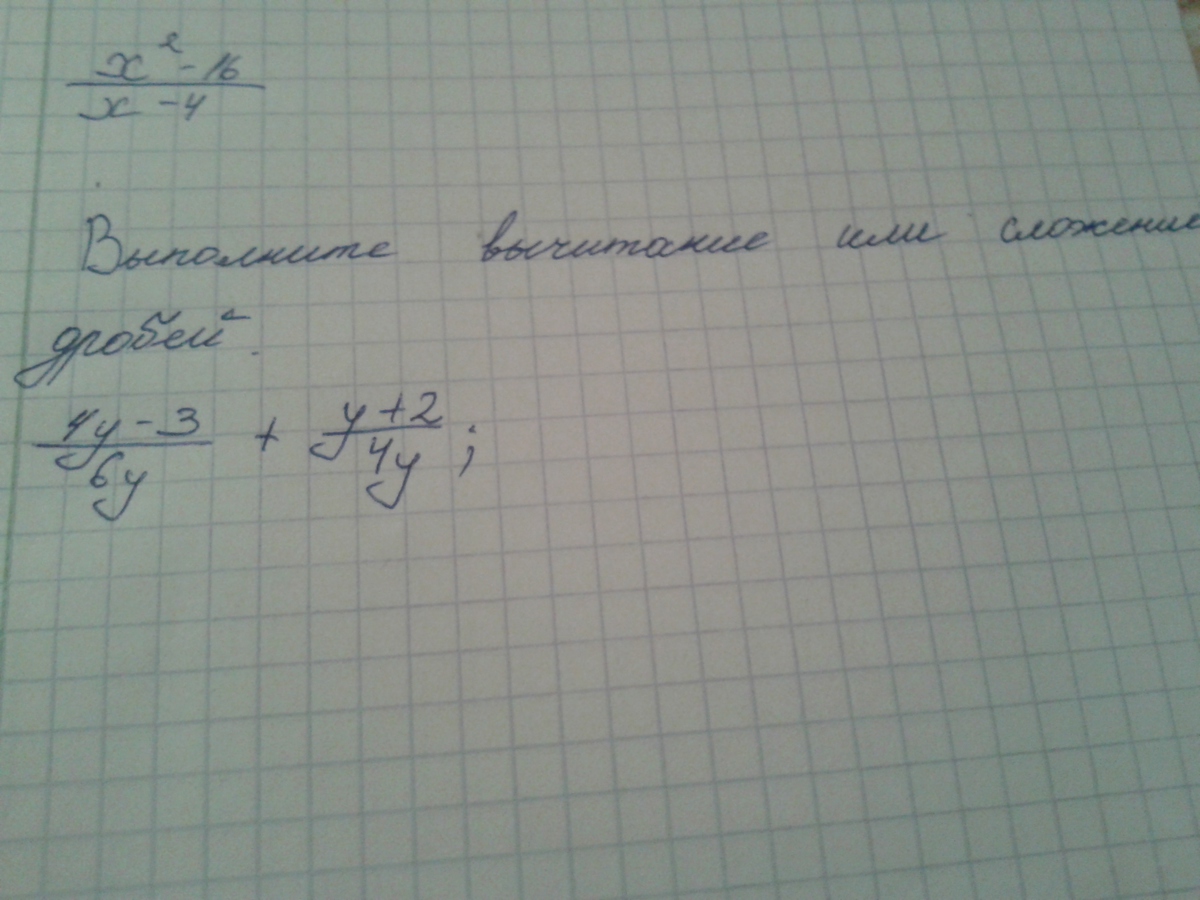 x² - 16
x - 4
Выполните вычитание или сложение
дробей.
4y - 3 + y + 2
6y 4y ;